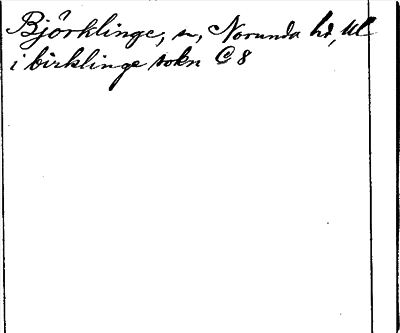 Björklinge, sn, Norunda hd, Ul
i birklinge sokn C 8